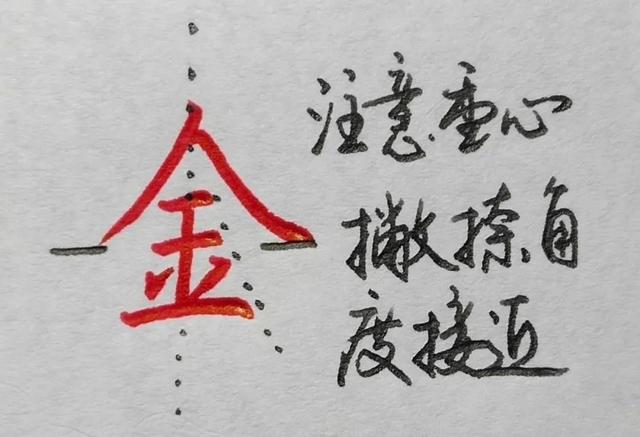 金
注意重心
撇捺角
度接近